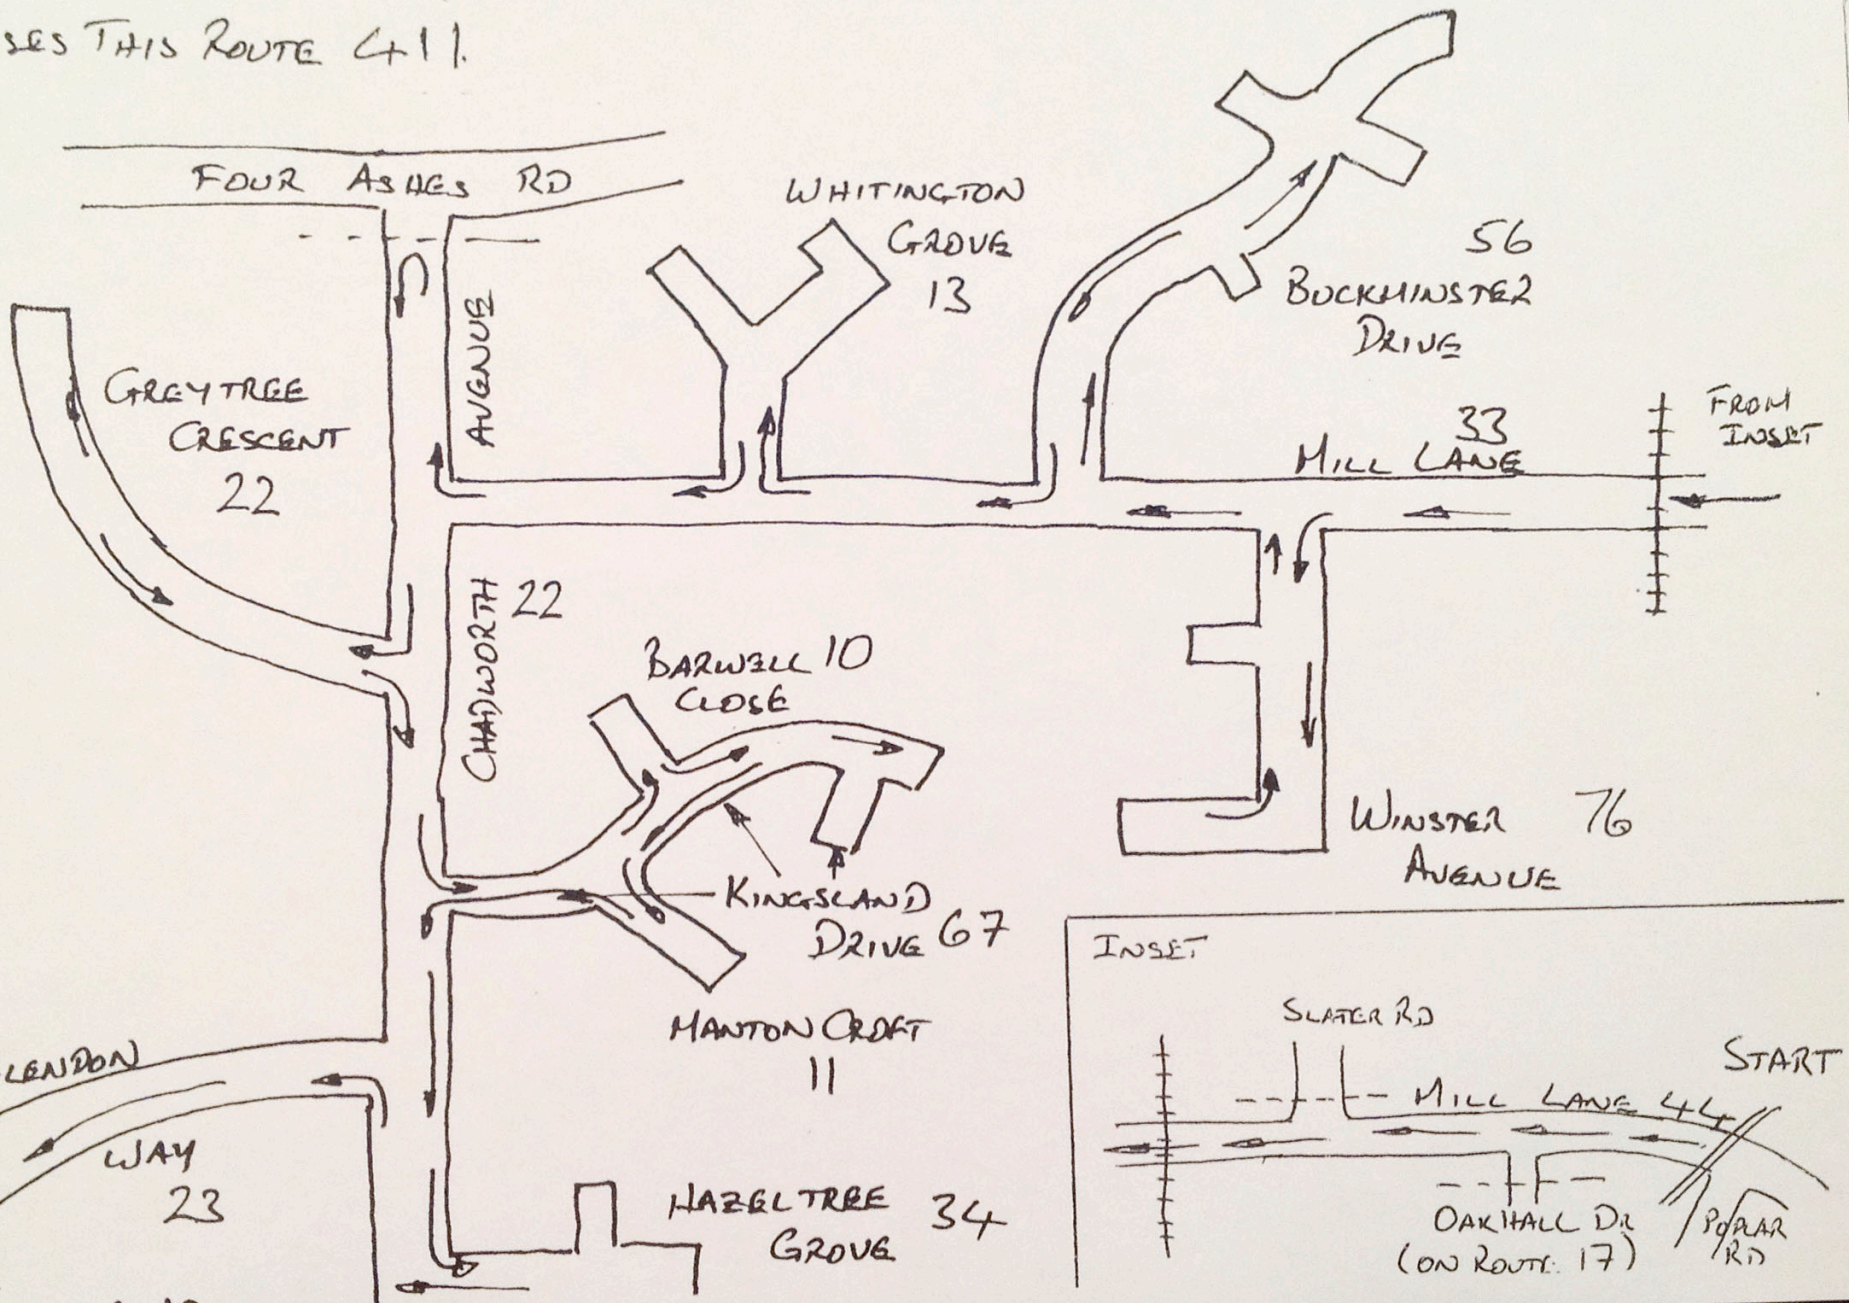 SES THIS ROUTE 411.
FOUR ASHES RD
WHITINGTON
GROVE
13
56
BUCKMINSTER
DRIVE
AVENUE
GREYTREE
CRESCENT
22
33
MILL LANE
FROM
INSET
CHADWORTH
22
BARWELL 10
CLOSE
WINSTER 76
AVENUE
KINGSLAND
DRIVE 67
MANTON CROFT
11
LENDON
WAY
23
HAZELTREE 34
GROVE
INSET
SLATER RD
START
MILL LANE 44
OAKHALL DR
(ON ROUTE 17)
POPLAR
RD